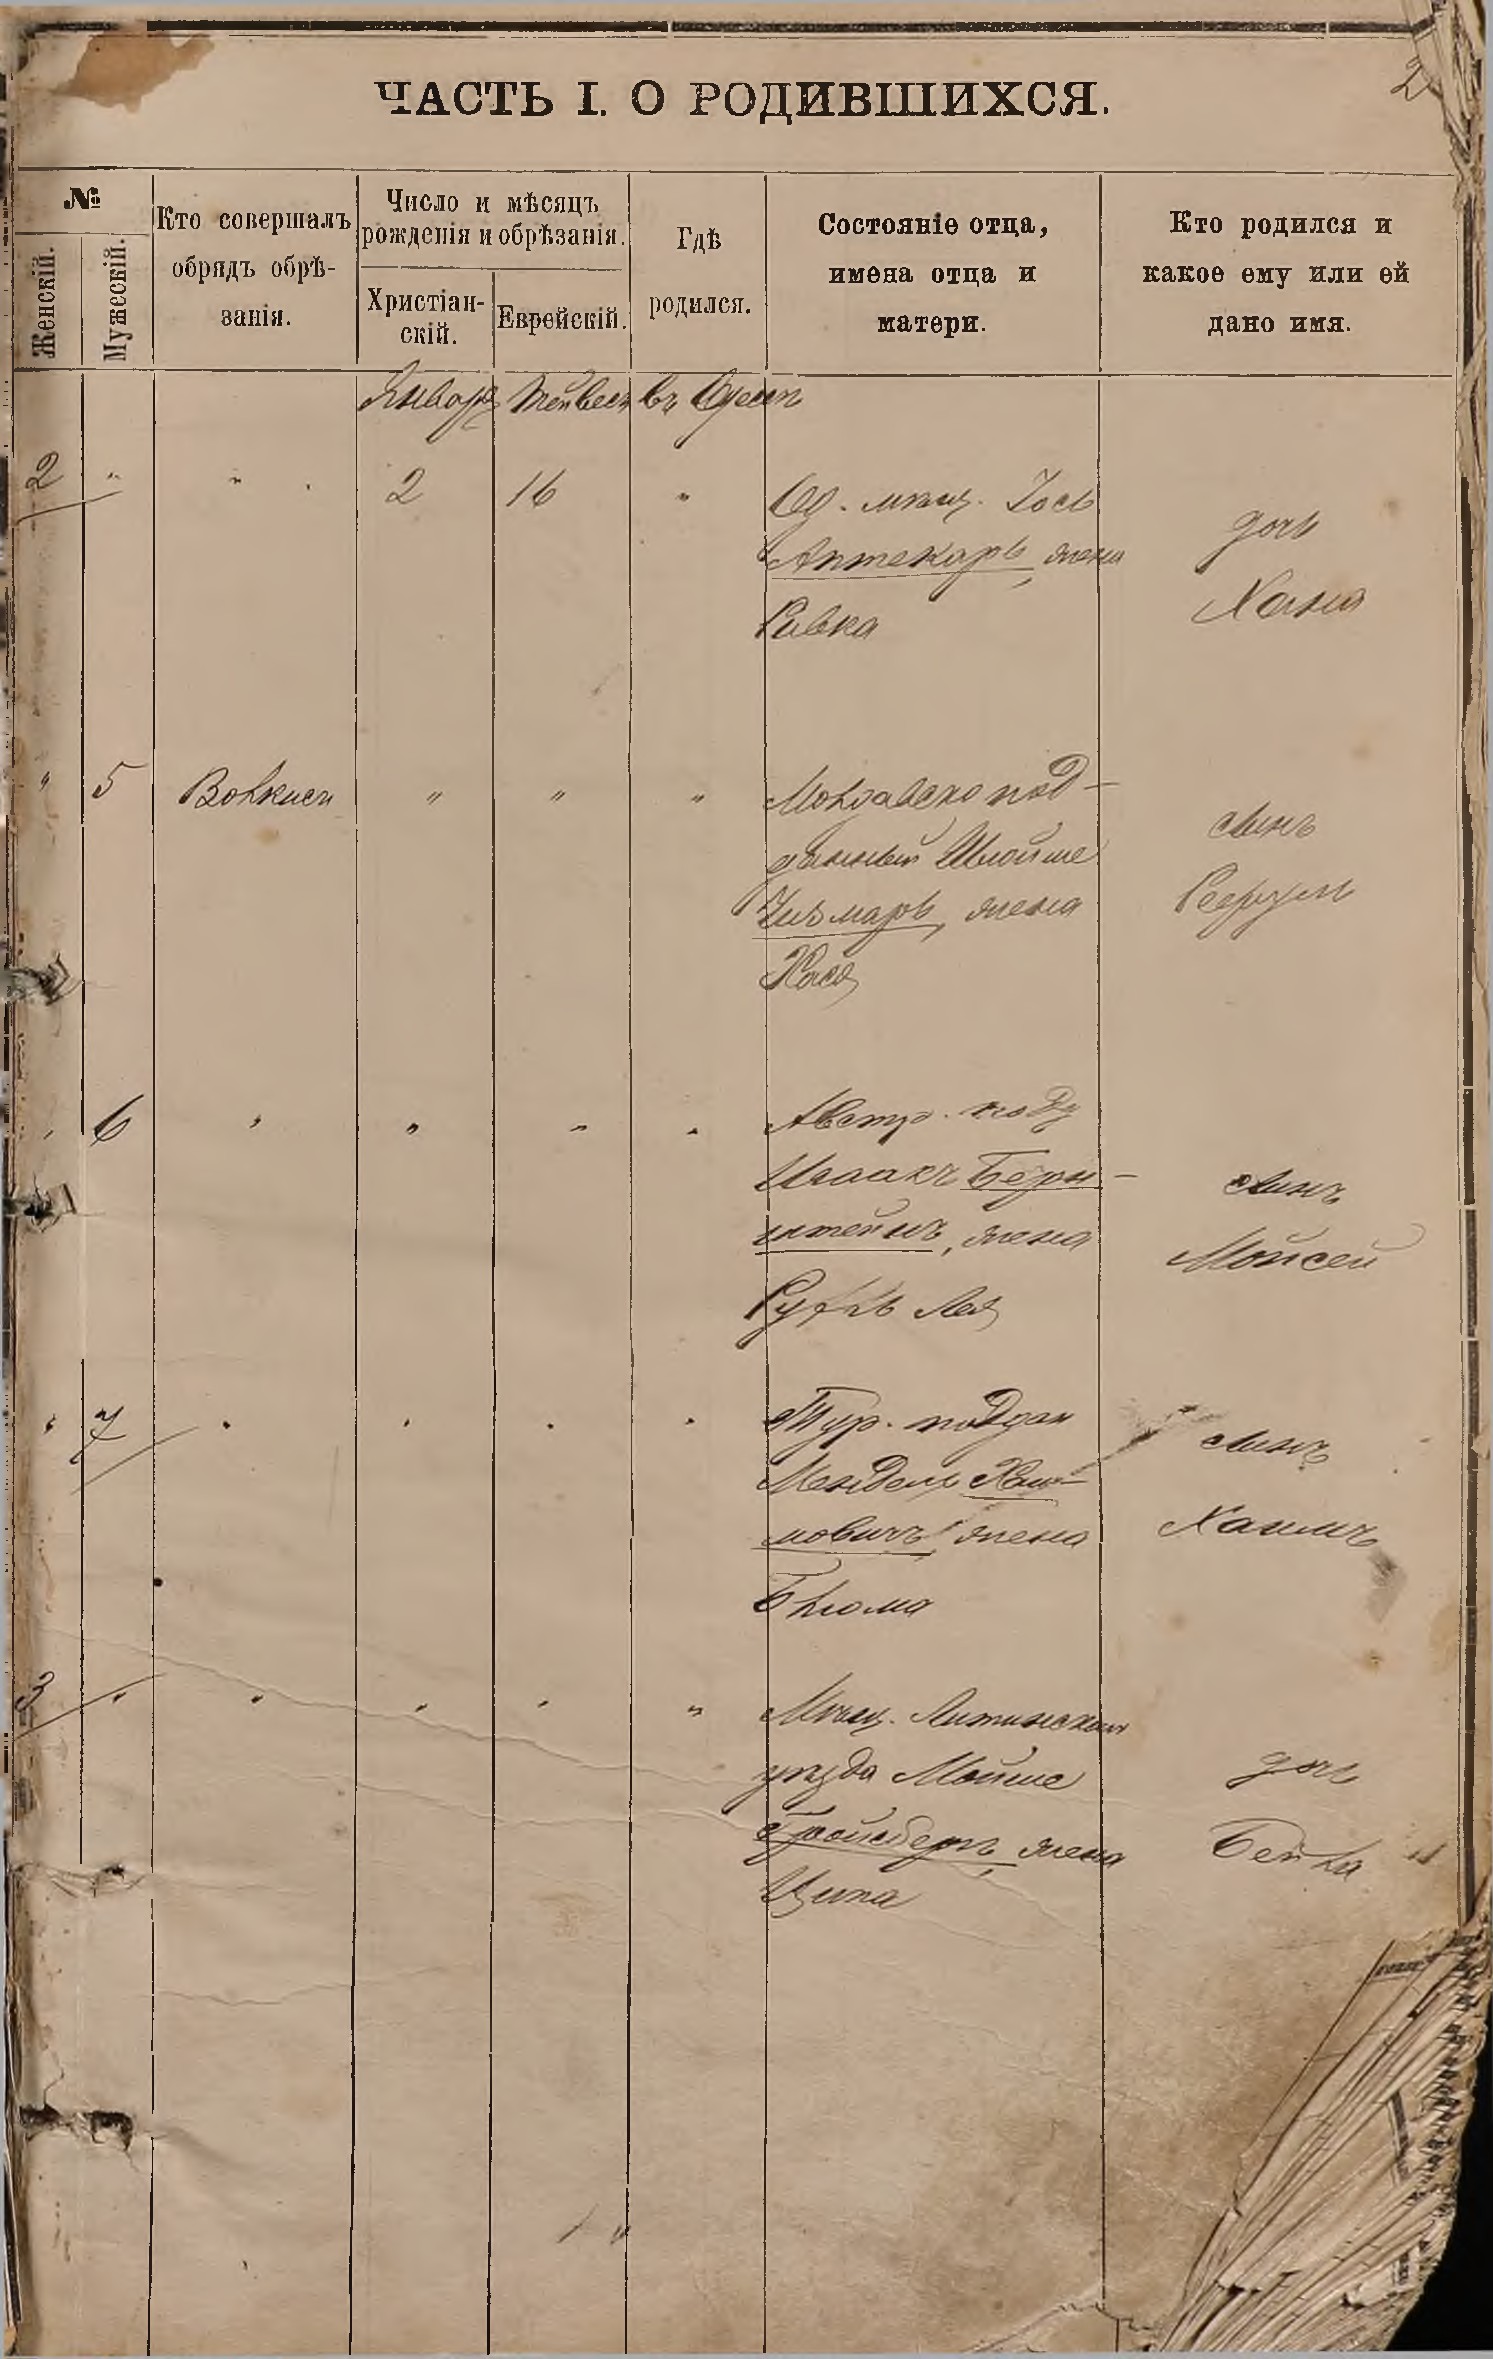 2
ЧАСТЬ I. О РОДИВШИХСЯ.
№
Женскій.
Мужескій.
Кто совершалъ
обрядъ обрѣ-
занія.
Число и мѣсяцъ
рожденія и обрѣзанія.
Христіан-
скій.
Еврейскій.
Гдѣ
родился.
Состояніе отца,
имена отца и
матери.
Кто родился и
какое ему или ей
дано имя.
Января Тейвесъ въ Одессѣ
2 " " 2 16 "
Од. мѣщ. Іось
Аптекарь, жена
Ривка
дочь
Хана
" 5 " " "
Молдавско под-
данный Шлойме
Чизмарь, жена
Хася
сынъ
" 6 " " " "
Австр. подд
Исаакъ Берн-
штейнъ, жена
Рухль Лея
сынъ
Мойсей
" 7 " " " "
Тур. поддан
Мендель Хаи-
мовичъ, жена
Блюма
сынъ
Хаимъ
3 " " " " "
Мѣщ. Литинскаго
уѣзда Мойше
Гройсбергъ, жена
Ципа
дочь
Бейла